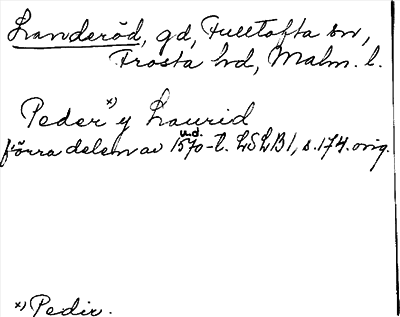 Landeröd, gd, Fulltofta sn,
Frosta hd, Malm. l.
Peder x) y Laurid
u.d.
förra delen av 1570-t. LSLB1, s. 174. orig.
x) Pedir.